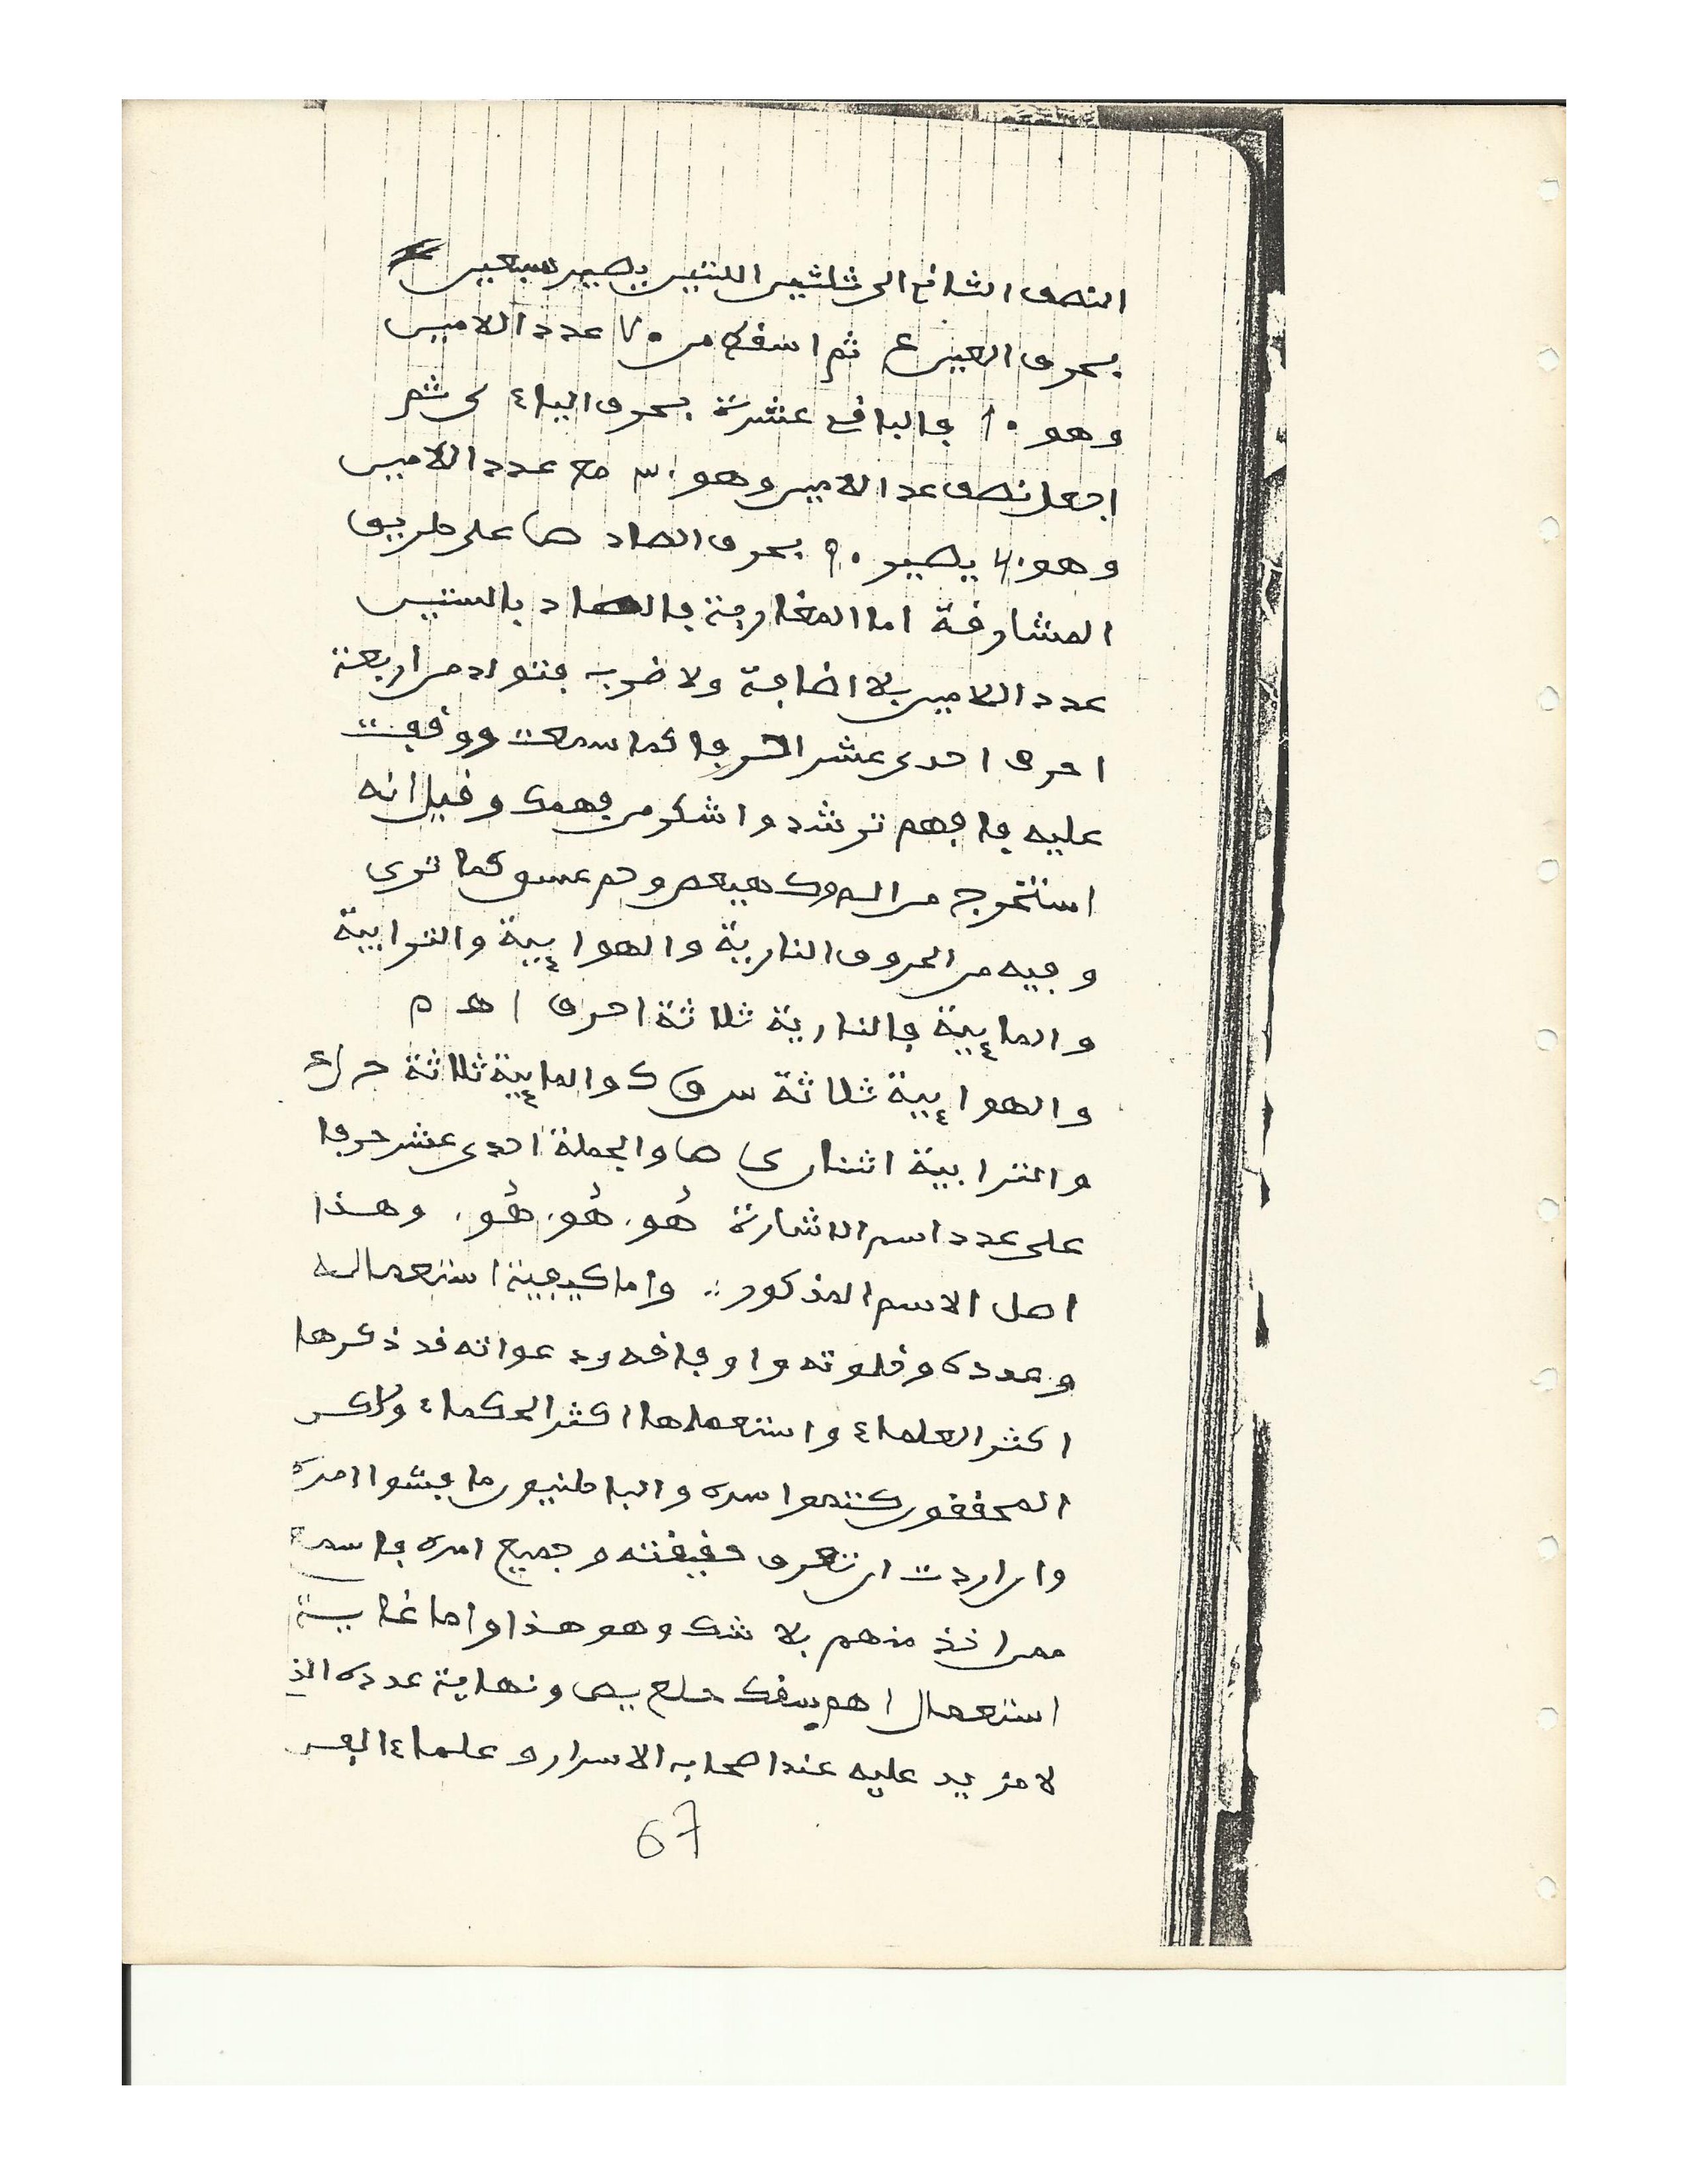 النصف الثاني الى ثلثين اللتين يصير سبعين
بحرف العين ع ثم اسقط من ٧٠ عدد اللامين
وهو ٦٠ فالباقي عشرة بحرف الياء ى ثم
اجعل نصف عدد اللامين وهو ٣٠ مع عدد اللامين
وهو ٦٠ يصير ٩٠ بحرف الصاد ص على طريق
المشارقة اما المغاربة فالصاد بالستين
عدد اللامين بلا اضافة ولا ضرب فتولد من اربعة
احرف احدى عشر حرفا كما سمعت ووقفت
عليه فافهم ترشد واشكر من فهمك وقيل انه
استخرج من الم وكهيعص وحم عسق كما ترى
وفيه من الحروف النارية والهوايية والترابية
والمايية فالنارية ثلاثة احرف ا ه م
والهوايية ثلاثة س ق ك والمايية ثلاثة ح ل ع
والترابية اثنان ى ص والجملة احدى عشر حرفا
على عدد اسم الاشارة هُو هُو هُو وهذا
اصل الاسم المذكور واما كيفية استعماله
وعدده وخلوته واوفاقه ودعواته قد ذكرها
اكثر العلماء واستعملها اكثر الحكماء ولاكن
المحققون كتموا سره والباطنيون ما فشوا امره
وان اردت ان تعرف حقيقته وجميع امره فاسمع
ممن اخذ منهم بلا شك وهو هذا واما غاية
استعمال اهم سقك حلع يص ونهاية عدده الذ
لا مزيد عليه عند اصحاب الاسرار وعلماء
67